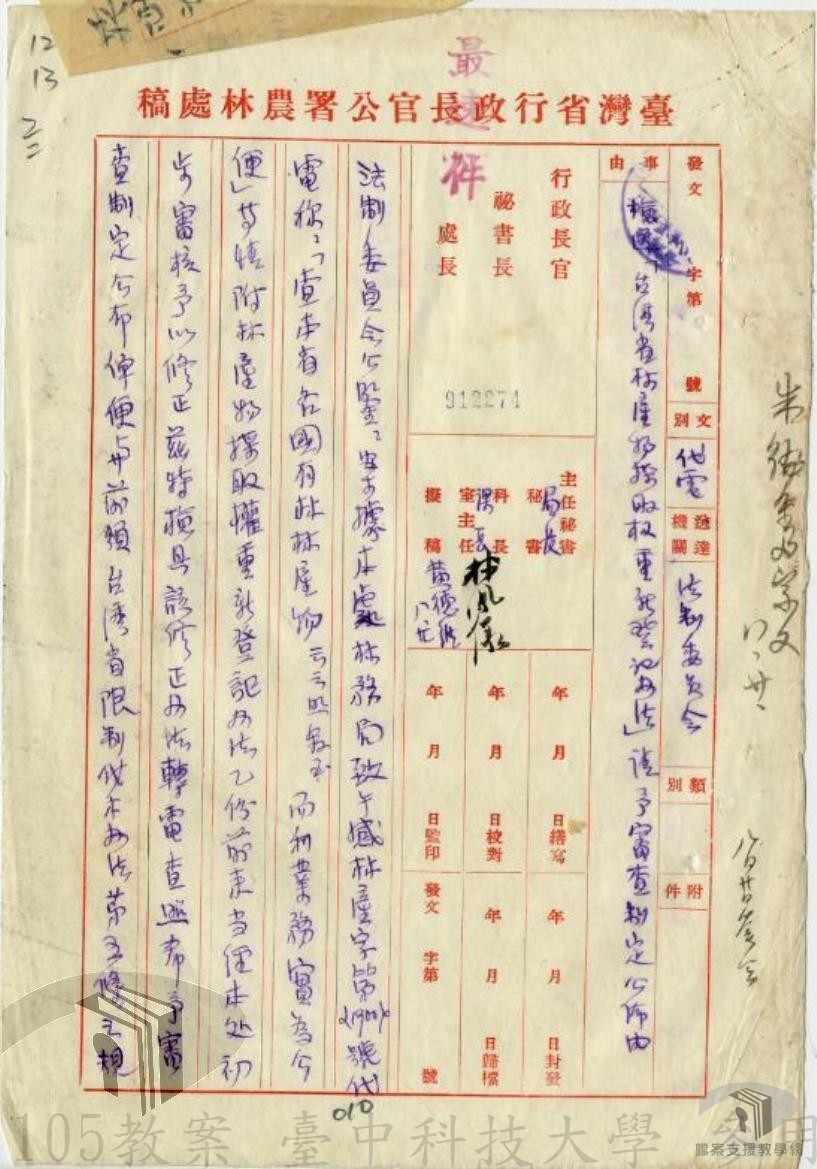 最速件
臺灣省行政長官公署農林處稿
發文 字第 號
文別 代電
送達機關 法制委員會
類別
附件
事由
台灣省林產物採取权重新登記办法」請予審查制定公佈由
行政長官
秘書長
處長
912274
主任秘書
秘書
科長
室主任
擬稿
局長
課長
年 月 日繕寫
年 月 日校對
年 月 日監印
年 月 日封發
年 月 日歸檔
發文 字第 號
法制委員会公鑒：案據本處林務局致午感林產字第(1900)號代
電称：「查本省各國有林林產物云云照敘至 而利業務實為公
便」等情附林產物採取權重新登記办法乙份前來当經本处初
步審核予以修正茲特檢具該修正办法轉電查照希予審
查制定公布俾便與前頒台湾省限制伐木办法第五條之規
12
13
010
105教案 臺中科技大學
檔案支援教學網